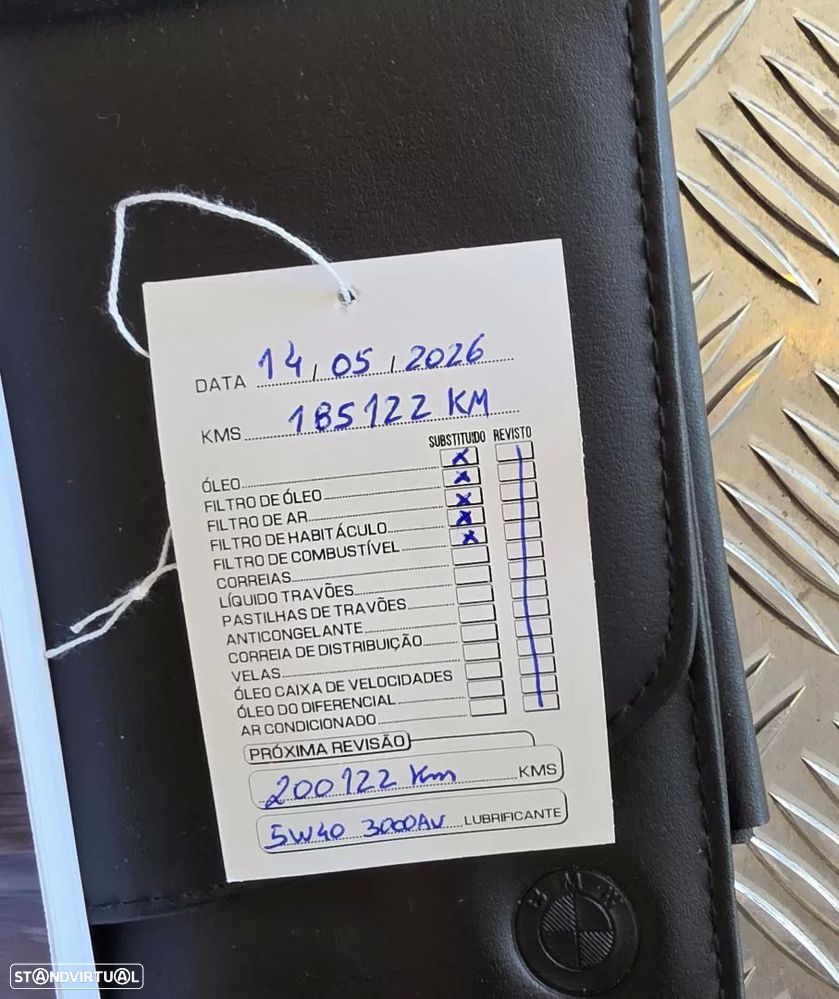 DATA 14/05/2026
KMS 185122 KM
SUBSTITUIDO REVISTO
ÓLEO x
FILTRO DE ÓLEO x
FILTRO DE AR x
FILTRO DE HABITÁCULO x
FILTRO DE COMBUSTÍVEL x
CORREIAS
LÍQUIDO TRAVÕES
PASTILHAS DE TRAVÕES
ANTICONGELANTE
CORREIA DE DISTRIBUIÇÃO
VELAS
ÓLEO CAIXA DE VELOCIDADES
ÓLEO DO DIFERENCIAL
AR CONDICIONADO
PRÓXIMA REVISÃO
200122 Km KMS
5W40 3000AV LUBRIFICANTE
BMW
STANDVIRTUAL